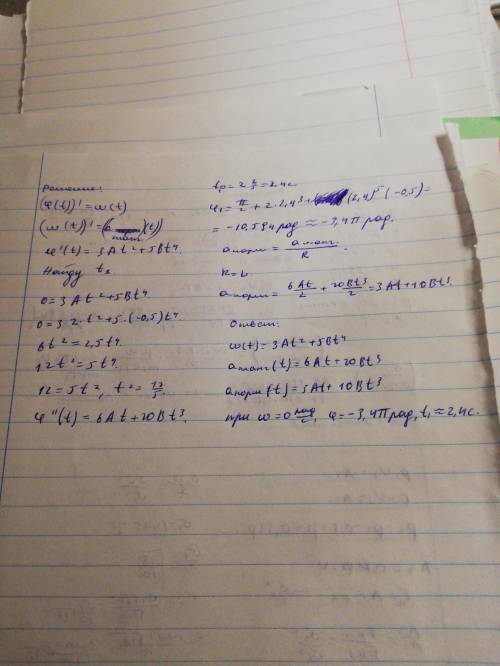 Решение:
(φ(t))' = ω(t)
(ω(t))' = (a танг (t))
φ'(t) = 3At² + 5Bt⁴
Найду t₁
0 = 3At² + 5Bt⁴
0 = 3·2·t² + 5·(-0,5)t⁴
6t² = 2,5t⁴
12t² = 5t⁴
12 = 5t², t² = 12/5
φ''(t) = 6At + 20Bt³
= 2,4с.
φ₁ = π/2 + 2·2,4³ + (2,4)⁵(-0,5) =
= -10,594 рад ≈ -3,4π рад.
a норм = a танг. / R
R = b
a норм = 6At/2 + 20Bt³/2 = 3At + 10Bt³
Ответ:
ω(t) = 3At² + 5Bt⁴
a танг (t) = 6At + 20Bt³
a норм (t) = 3At + 10Bt³
при ω = 0 рад/с, φ = -3,4π рад, t₁ ≈ 2,4с.